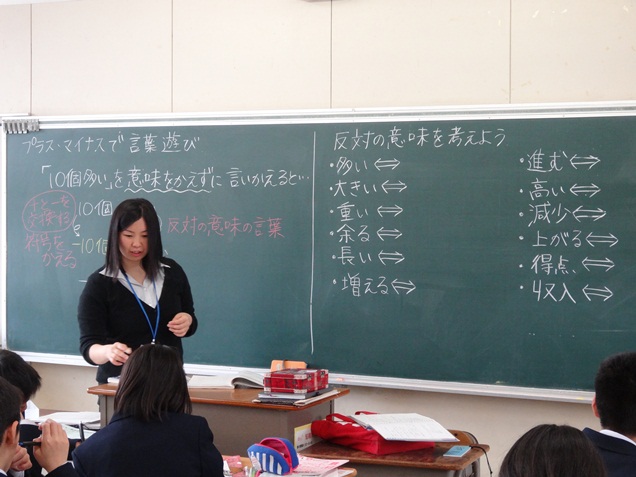 プラス・マイナスで言葉遊び
「10個多い」を意味をかえずに言いかえると…
10個
符号を
かえる
-10個
反対の意味の言葉
反対の意味を考えよう
・多い⇔
・大きい⇔
・重い⇔
・余る⇔
・長い⇔
・増える⇔
・進む⇔
・高い⇔
・減少⇔
・上がる⇔
・得点⇔
・収入⇔